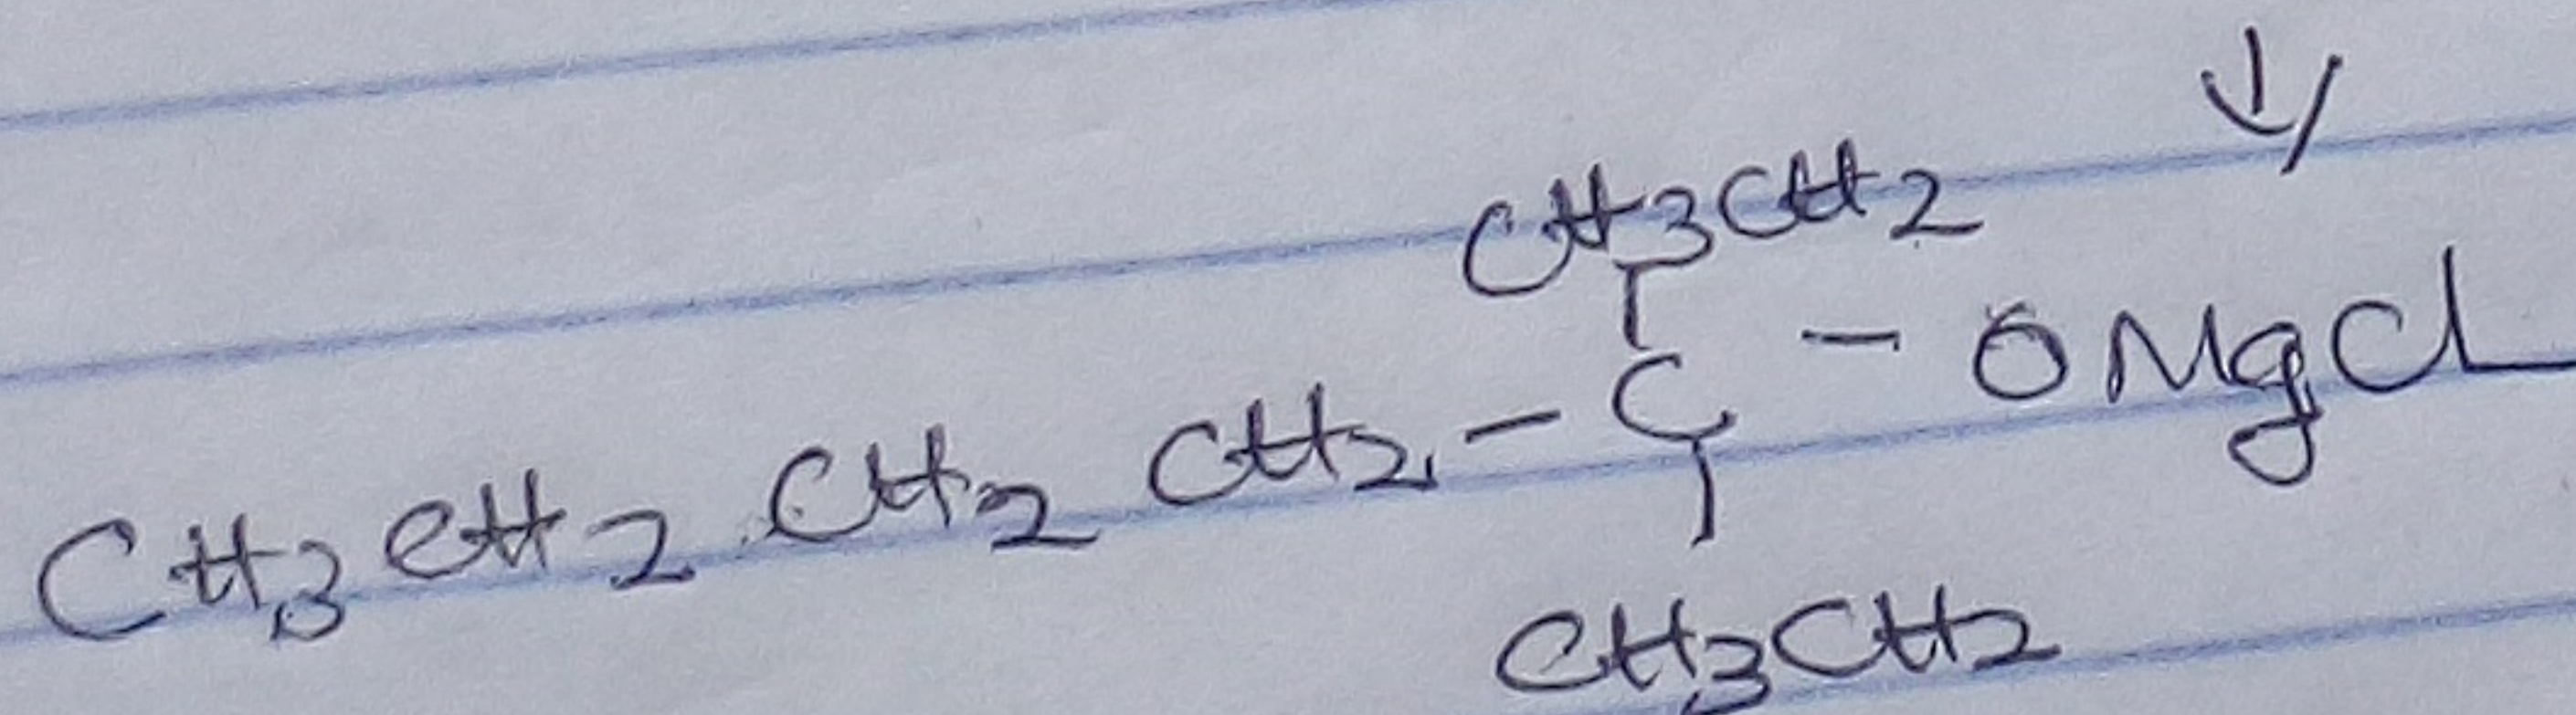 ↓
CH3CH2
|
CH3CH2CH2CH2 - C - OMgCl
|
CH3CH2